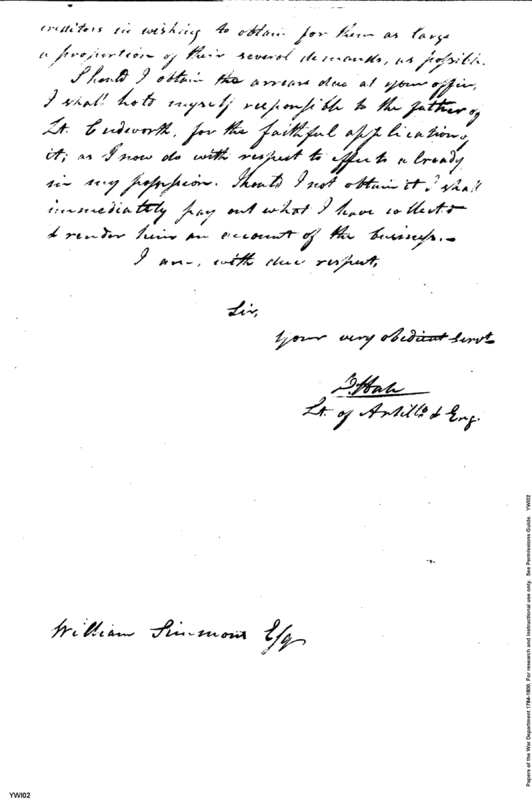 creditors in wishing to obtain for them as large
a proportion of their several demands, as possible.
Should I obtain the arrears due at your office,
I shall hold myself responsible to the father of
Lt. Cudworth, for the faithful application of
it; as I now do with respect to effects already
in my possession. Should I not obtain it I shall
immediately pay out what I have collected
& render him an account of the business.
I am, with due respect,
Sir,
Your very obedient Servt
Hale
Lt. of Artills & Eng.
William Simmons Esq
Papers of the War Department 1784-1800. For research and instructional use only. See Permissions Guide. YWI02
YWI02